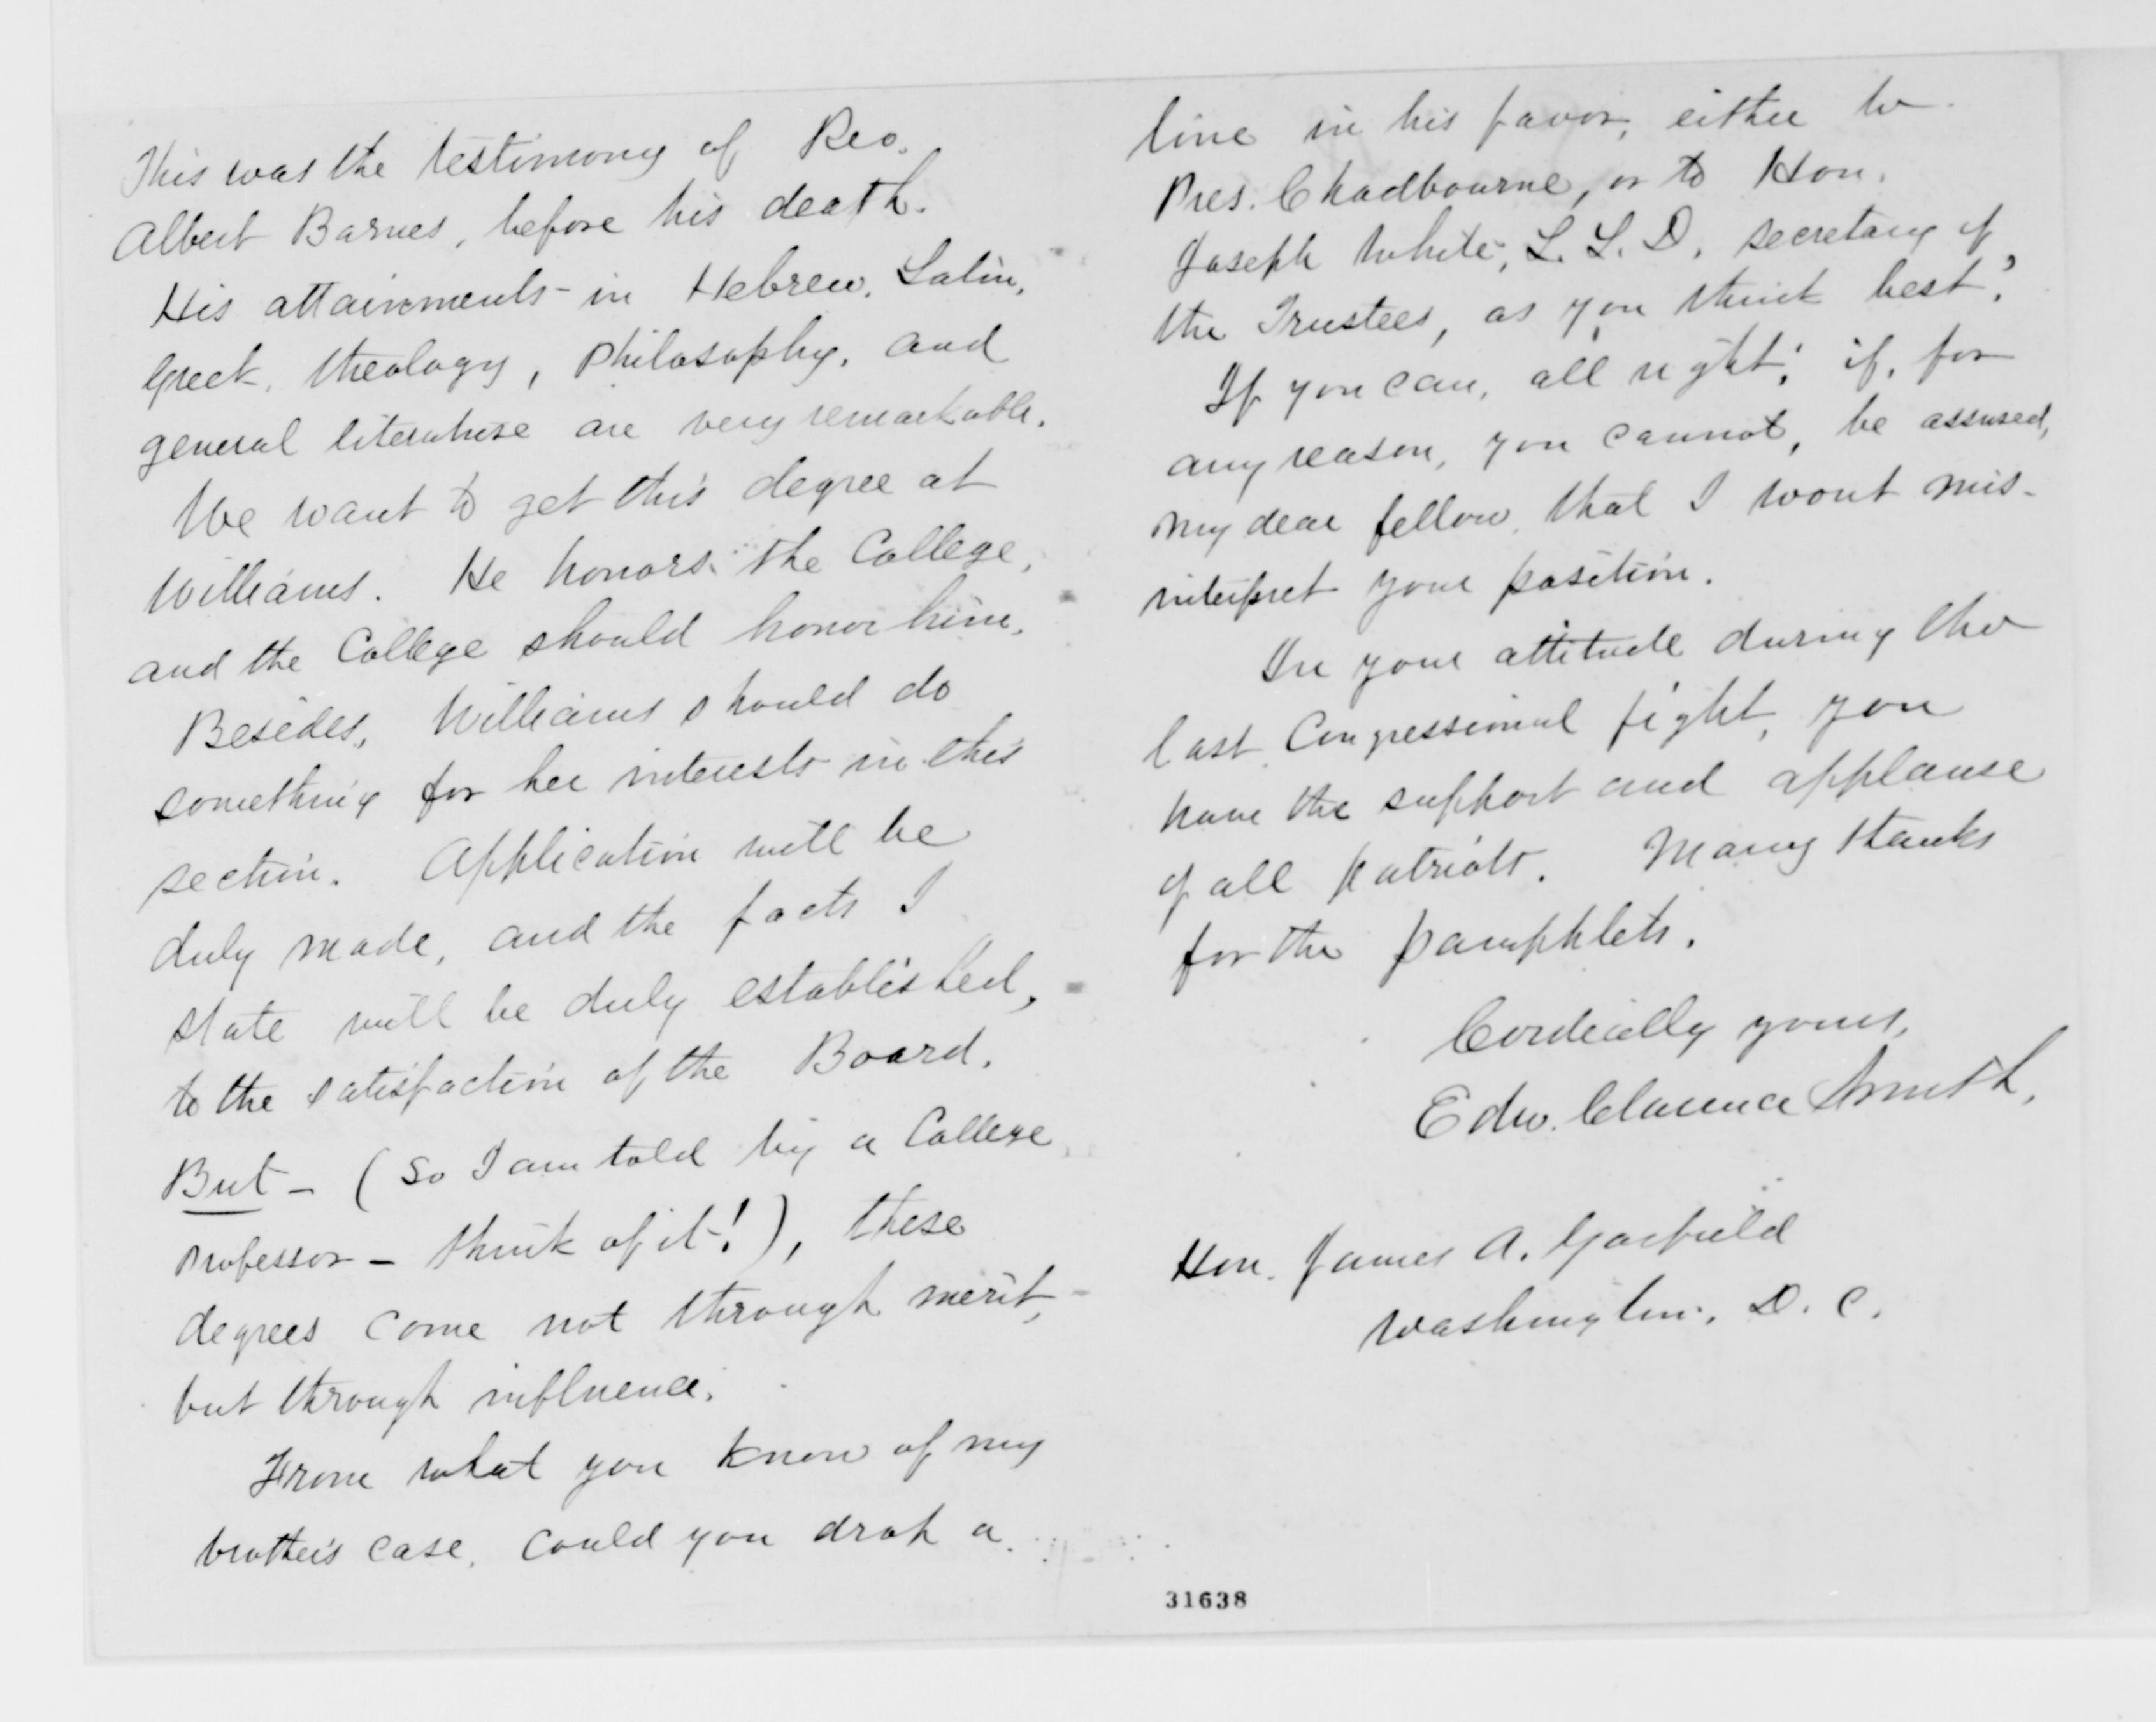 This was the testimony of Rev.
Albert Barnes, before his death.
His attainments in Hebrew, Latin,
Greek, theology, philosophy, and
general literature are very remarkable.
We want to get this degree at
Williams. He honors the College,
and the College should honor him.
Besides, Williams should do
something for her interests in this
section. Application will be
duly made, and the facts I
state will be duly established,
to the satisfaction of the Board.
But - (so I am told by a College
Professor - think of it!), these
degrees come not through merit,
but through influence.
From what you know of my
brother's case, could you drop a
line in his favor, either to
Pres. Chadbourne, or to Hon.
Joseph White, L. L. D. secretary of
the Trustees, as you think best?
If you can, all right; if, for
any reason, you cannot, be assured,
my dear fellow, that I wont mis-
interpret your position.
In your attitude during the
last Congressional fight, you
have the support and applause
of all patriots. Many thanks
for the pamphlets.
Cordially yours,
Edw. Clarence Smith.
Hon. James A. Garfield
Washington, D. C.
31638